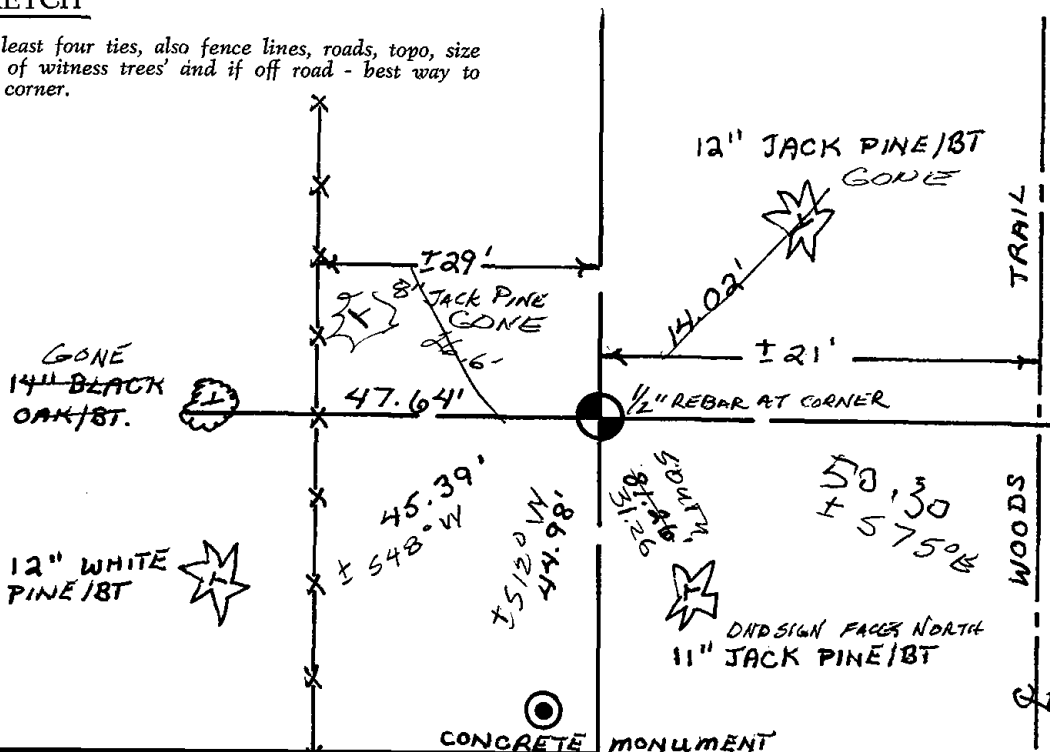 ETCH
least four ties, also fence lines, roads, topo, size
of witness trees' and if off road - best way to
corner.
12" JACK PINE/BT
GONE
TRAIL
±29'
8" JACK PINE
GONE
14.02'
±21'
GONE
14" BLACK
OAK/BT.
47.64'
1/2" REBAR AT CORNER
45.39'
± S48° W
±S12° W
44.98'
SOUTH
31.26
50.30
± S75°E
WOODS
12" WHITE
PINE/BT
SIGN FACES NORTH
11" JACK PINE/BT
CONCRETE MONUMENT